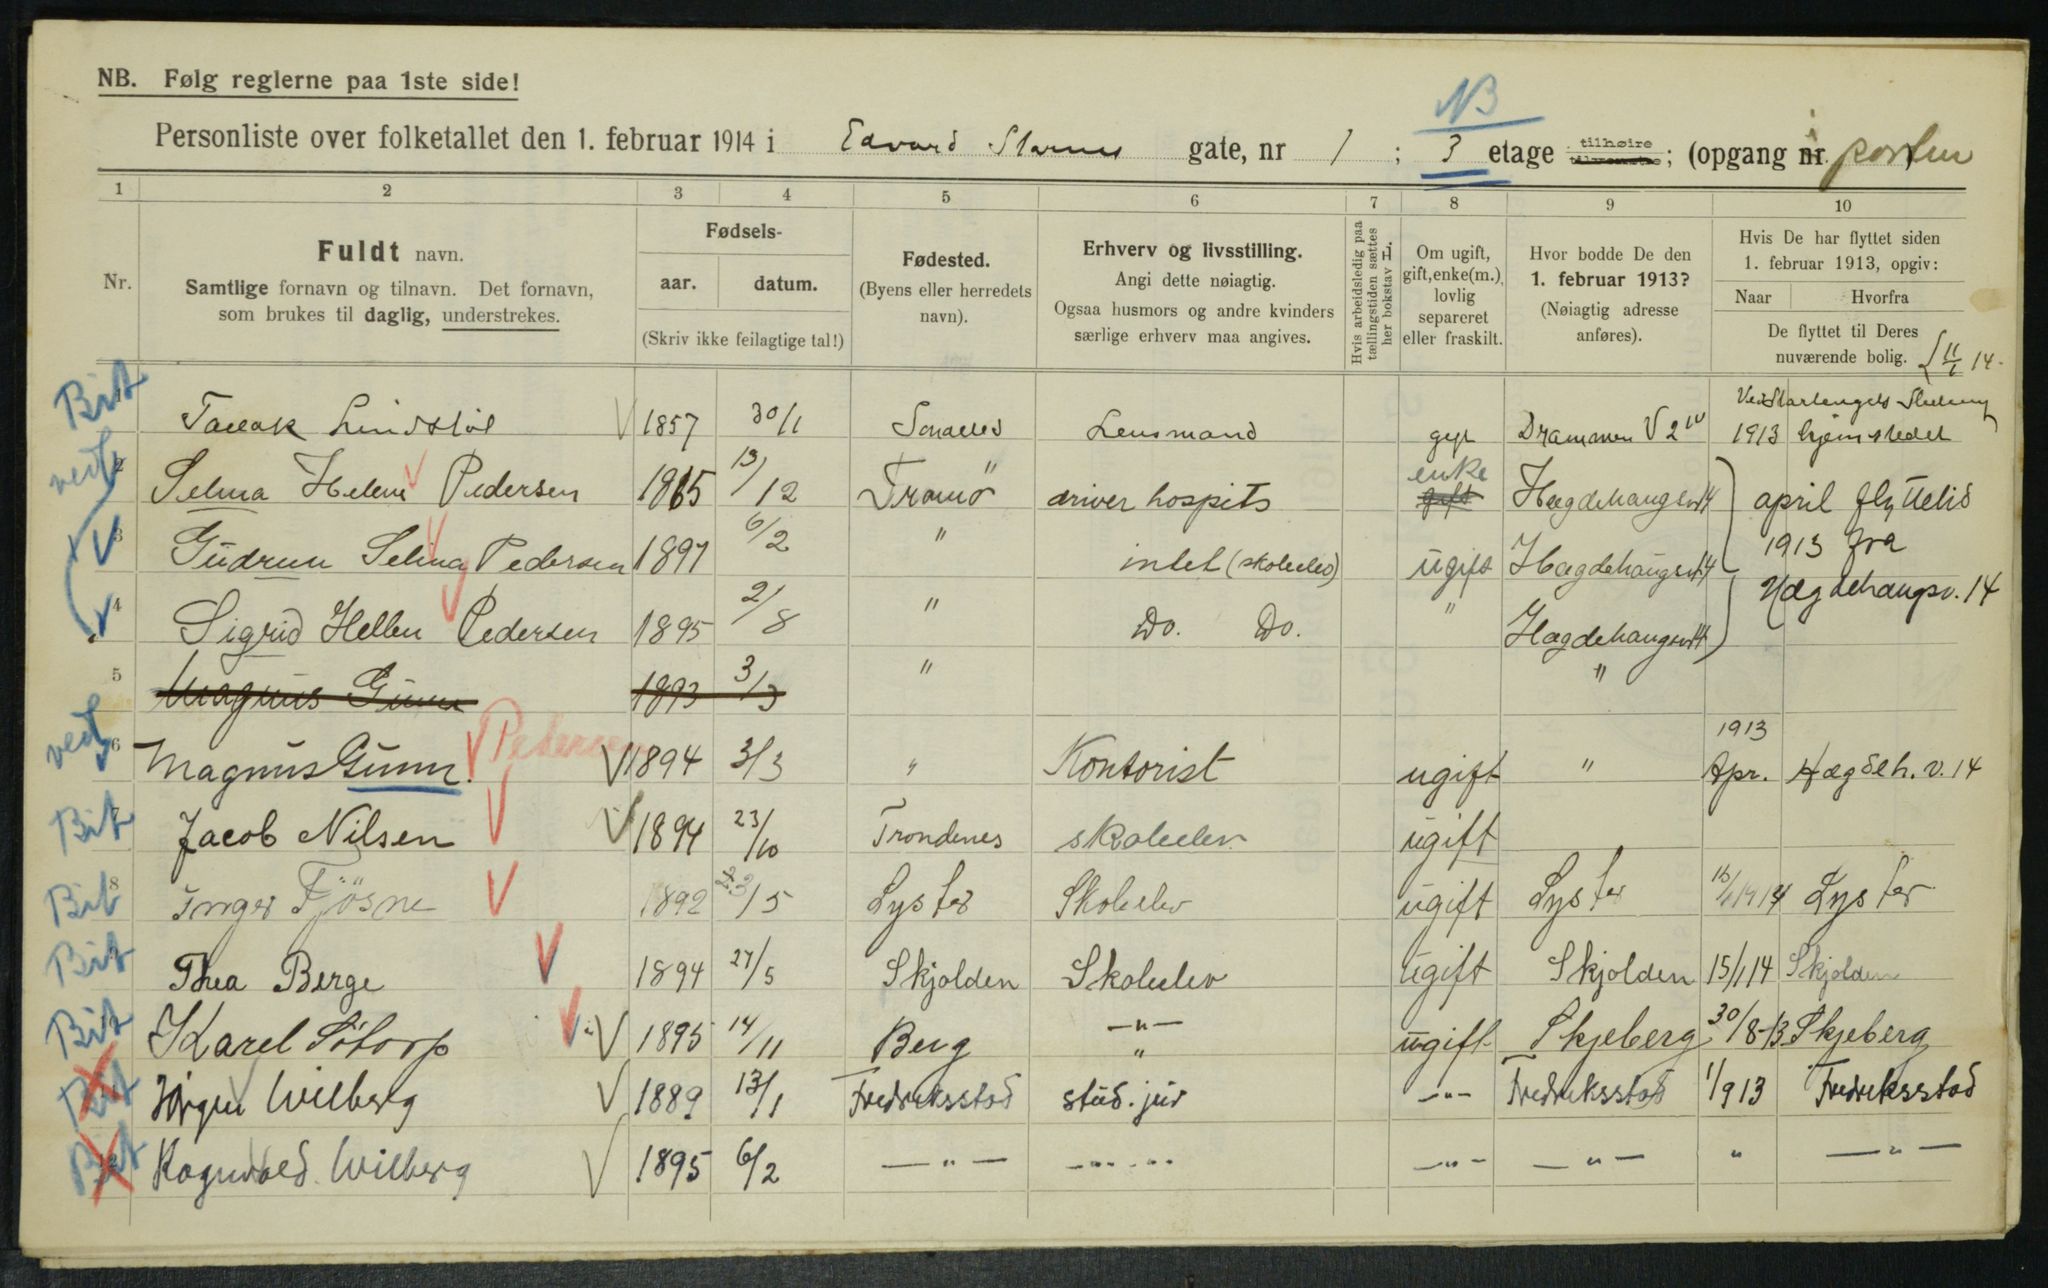 NB
NB. Følg reglerne paa 1ste side!
Personliste over folketallet den 1. februar 1914 i Edvard Storms gate, nr 1; 3 etage tilhøire tilvenstre; (opgang nr. i porten
1 2 3 4 5 6 7 8 9 10
Nr.
Fuldt navn.
Samtlige fornavn og tilnavn. Det fornavn,
som brukes til daglig, understrekes.
Fødsels-
aar. datum.
(Skriv ikke feilagtige tal!)
Fødested.
(Byens eller herredets
navn).
Erhverv og livsstilling.
Angi dette nøiagtig.
Ogsaa husmors og andre kvinders
særlige erhverv maa angives.
Hvis arbeidsledig paa
tællingstiden sættes
her bokstav L.
Om ugift,
gift, enke(m.),
lovlig
separeret
eller fraskilt.
Hvor bodde De den
1. februar 1913?
(Nøiagtig adresse
anføres).
Hvis De har flyttet siden
1. februar 1913, opgiv:
Naar Hvorfra
De flyttet til Deres
nuværende bolig. 11/1 14
Bit 1 Lindstøl 1857 30/1 Lensmand gift Drammen V 2 1913 hjemstedet
vert 2 Selma Helene Pedersen 1865 13/12 Tromsø driver hospits gift enke Hægdehaugsv 14 april flyttetid
3 Gudrun Selma Pedersen 1897 6/2 " intet (skoleelev) ugift Hægdehaugsv 14 1913 fra
4 Sigrid Hellen Pedersen 1895 2/8 " Do. Do. " Hægdehaugsv 14 Hægdehaugsv. 14
5 Magnus Gunn 1893 3/3 " "
vert 6 Magnus Gunn. Pedersen 1894 3/3 " Kontorist ugift " 1913 Apr. Hægdeh. v. 14
Bit 7 Jacob Nilsen 1894 23/10 Trondenes skoleelev ugift
Bit 8 Inger Fjösne 1892 23/5 Lyster Skoleelev ugift Lyster 15/1 1914 Lyster
Bit 9 Thea Berge 1894 27/5 Skjolden Skoleelev ugift Skjolden 15/1 14 Skjolden
Bit 10 Karel Sötorp 1895 14/11 Berg —"— " ugift Skjeberg 30/8-13 Skjeberg
Bit 11 Jörgen Wilberg 1889 13/1 Fredriksstad stud. jur —"— Fredriksstad 1/9 13 Fredriksstad
Bit 12 Ragnvald Wilberg 1895 6/2 —"— —"— —"— —"— " —"—